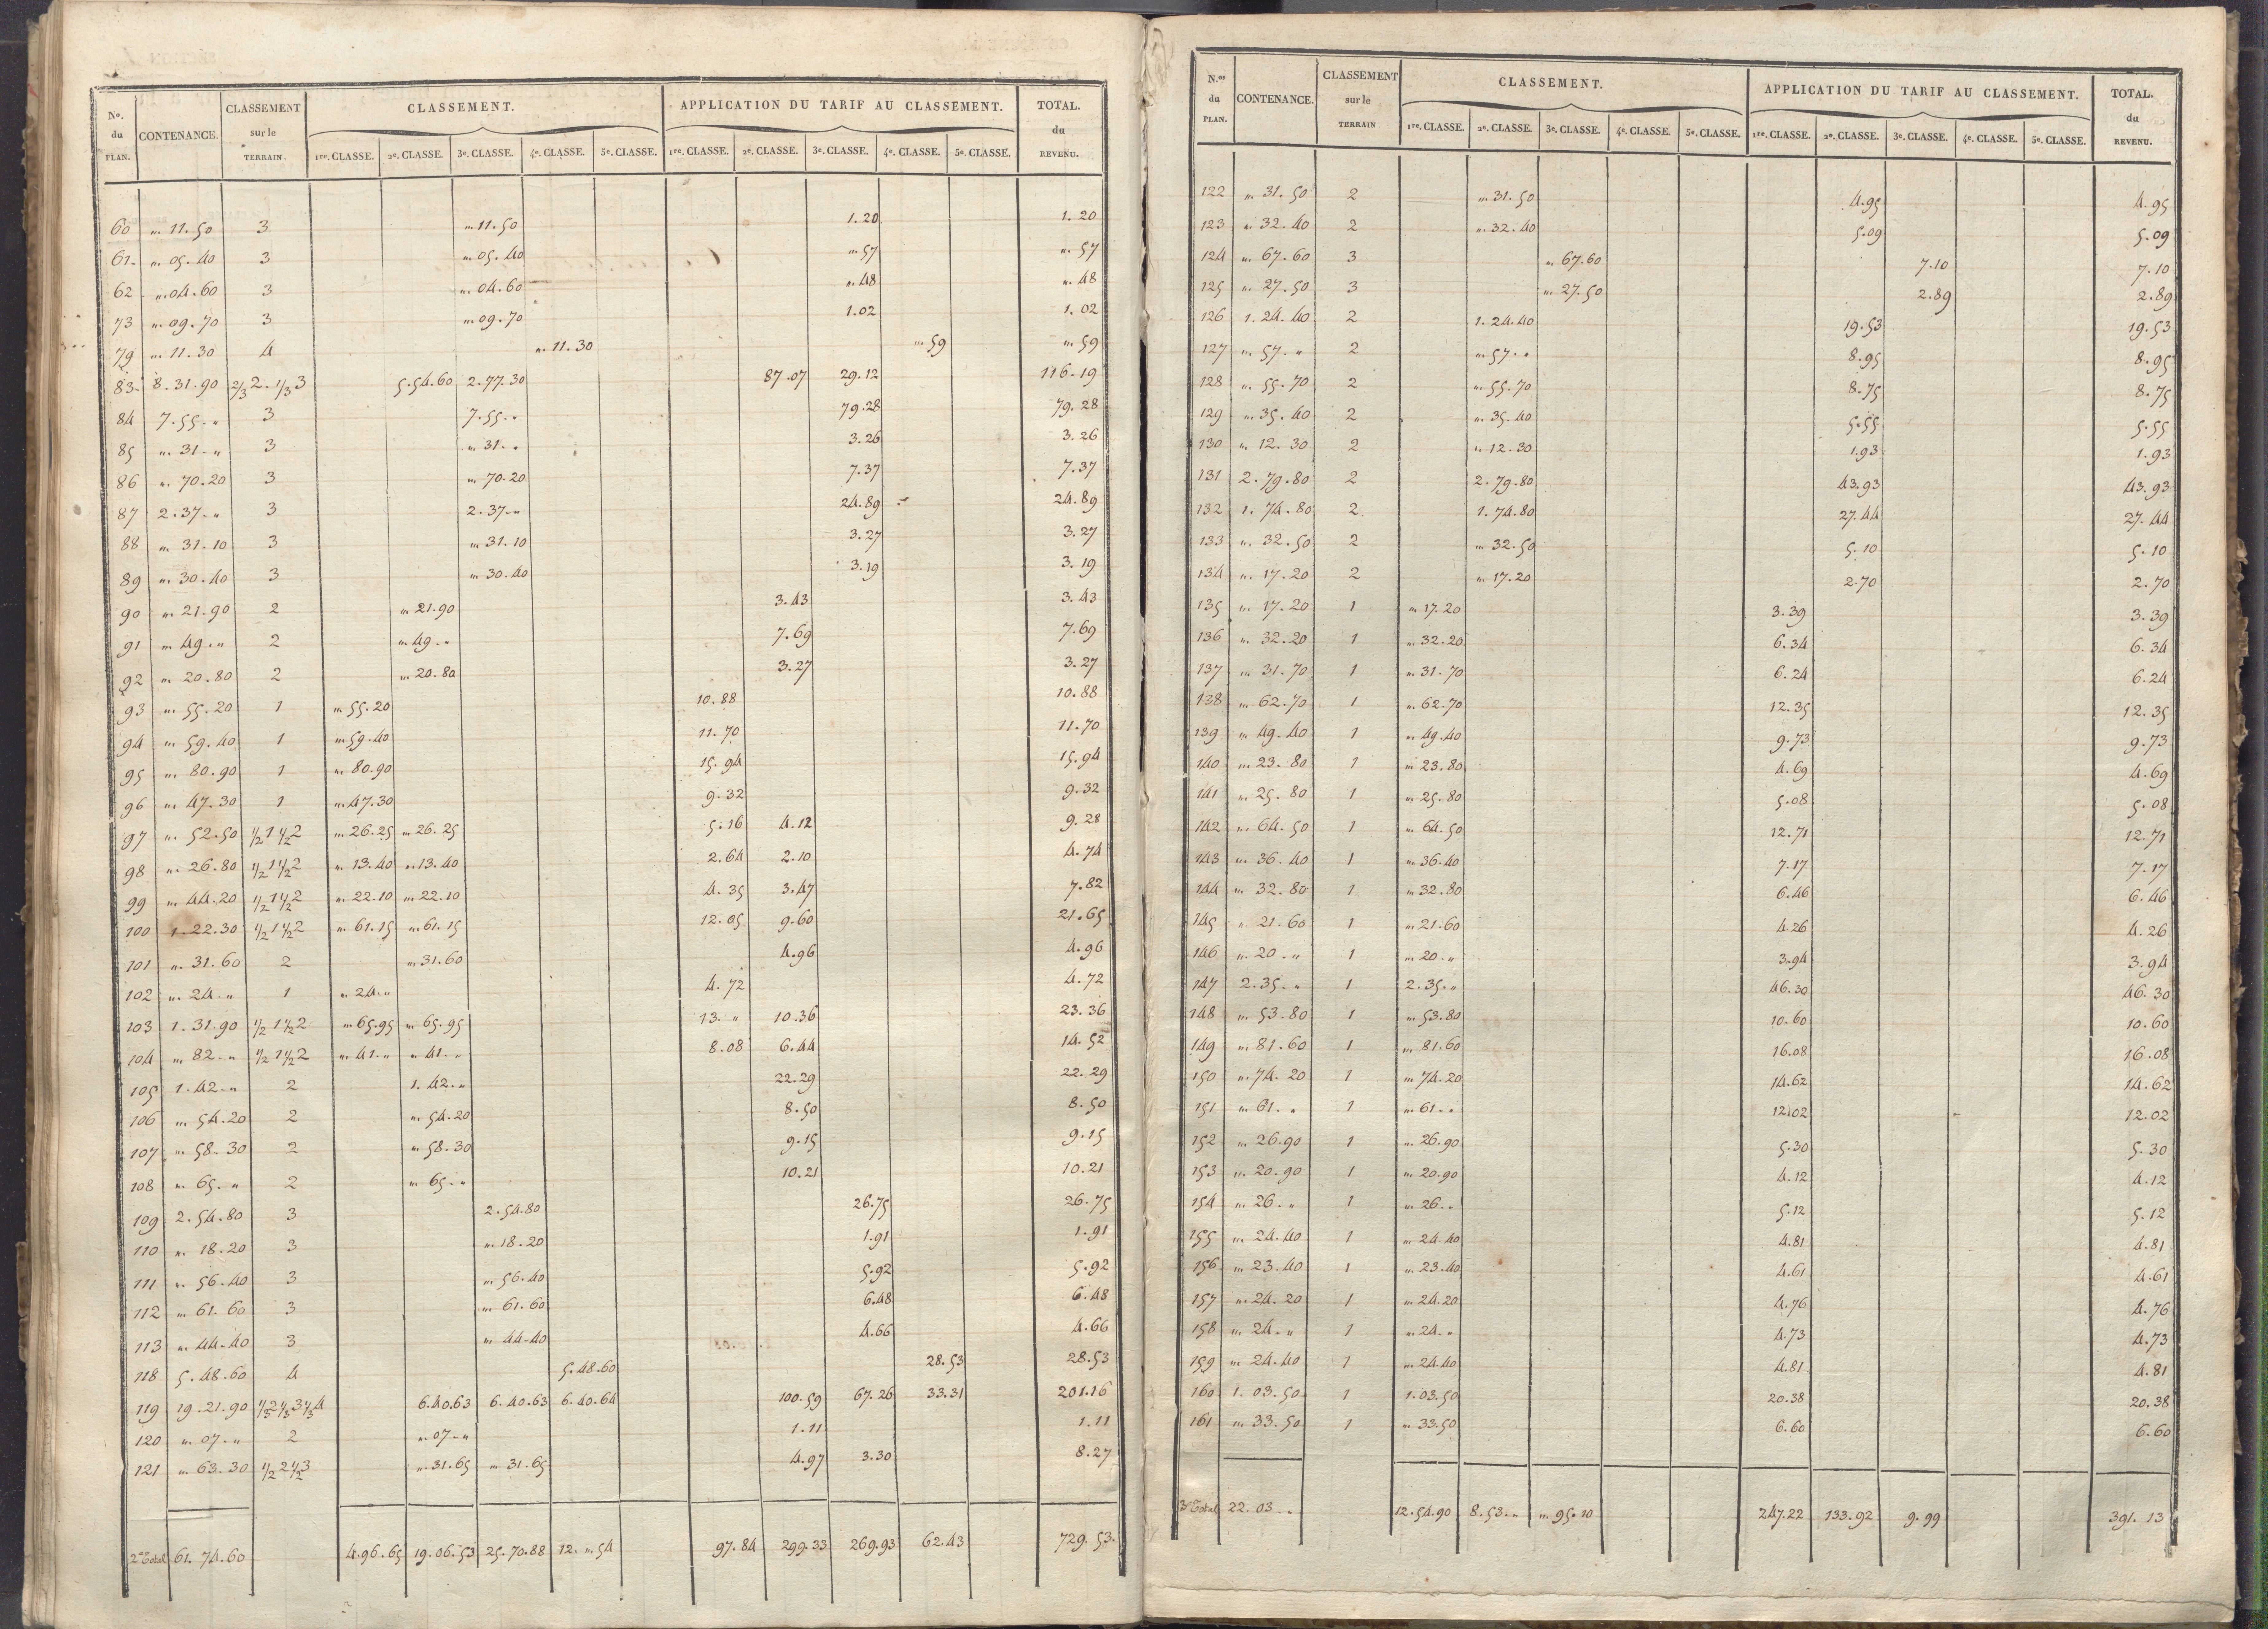 No. du PLAN. CONTENANCE. CLASSEMENT sur le TERRAIN CLASSEMENT. APPLICATION DU TARIF AU CLASSEMENT. TOTAL. du REVENU.
1re. CLASSE. 2e. CLASSE. 3e. CLASSE. 4e. CLASSE. 5e. CLASSE. 1re. CLASSE. 2e. CLASSE. 3e. CLASSE. 4e. CLASSE. 5e. CLASSE.
60 " 11.50 3 " 11.50 1.20 1.20
61 " 05.40 3 " 05.40 " 57 " 57
62 " 04.60 3 " 04.60 " 48 " 48
73 " 09.70 3 " 09.70 1.02 1.02
79 " 11.30 4 " 11.30 " 59 " 59
83 8.31.90 2/3 2. 1/3 3 5.54.60 2.77.30 87.07 29.12 116.19
84 7.55." 3 7.55." 79.28 79.28
85 " 31." 3 " 31." 3.26 3.26
86 " 70.20 3 " 70.20 7.37 7.37
87 2.37." 3 2.37." 24.89 24.89
88 " 31.10 3 " 31.10 3.27 3.27
89 " 30.40 3 " 30.40 3.19 3.19
90 " 21.90 2 " 21.90 3.43 3.43
91 " 49." 2 " 49." 7.69 7.69
92 " 20.80 2 " 20.80 3.27 3.27
93 " 55.20 1 " 55.20 10.88 10.88
94 " 59.40 1 " 59.40 11.70 11.70
95 " 80.90 1 " 80.90 15.94 15.94
96 " 47.30 1 " 47.30 9.32 9.32
97 " 52.50 1/2 1 1/2 2 " 26.25 " 26.25 5.16 4.12 9.28
98 " 26.80 1/2 1 1/2 2 " 13.40 " 13.40 2.64 2.10 4.74
99 " 44.20 1/2 1 1/2 2 " 22.10 " 22.10 4.35 3.47 7.82
100 1.22.30 1/2 1 1/2 2 " 61.15 " 61.15 12.05 9.60 21.65
101 " 31.60 2 " 31.60 4.96 4.96
102 " 24." 1 " 24." 4.72 4.72
103 1.31.90 1/2 1 1/2 2 " 65.95 " 65.95 13." 10.36 23.36
104 " 82." 1/2 1 1/2 2 " 41." " 41." 8.08 6.44 14.52
105 1.42." 2 1.42." 22.29 22.29
106 " 54.20 2 " 54.20 8.50 8.50
107 " 58.30 2 " 58.30 9.15 9.15
108 " 65." 2 " 65." 10.21 10.21
109 2.54.80 3 2.54.80 26.75 26.75
110 " 18.20 3 " 18.20 1.91 1.91
111 " 56.40 3 " 56.40 5.92 5.92
112 " 61.60 3 " 61.60 6.48 6.48
113 " 44.40 3 " 44.40 4.66 4.66
118 5.48.60 4 5.48.60 28.53 28.53
119 19.21.90 1/3 2 1/3 3 1/3 4 6.40.63 6.40.63 6.40.64 100.59 67.26 33.31 201.16
120 " 07." 2 " 07." 1.11 1.11
121 " 63.30 1/2 2 1/2 3 " 31.65 " 31.65 4.97 3.30 8.27
2e Total 61.74.60 4.96.65 19.06.53 25.70.88 12.".54 97.84 299.33 269.93 62.43 729.53
N.os du PLAN. CONTENANCE. CLASSEMENT sur le TERRAIN CLASSEMENT. APPLICATION DU TARIF AU CLASSEMENT. TOTAL. du REVENU.
1re. CLASSE. 2e. CLASSE. 3e. CLASSE. 4e. CLASSE. 5e. CLASSE. 1re. CLASSE. 2e. CLASSE. 3e. CLASSE. 4e. CLASSE. 5e. CLASSE.
122 " 31.50 2 " 31.50 4.95 4.95
123 " 32.40 2 " 32.40 5.09 5.09
124 " 67.60 3 " 67.60 7.10 7.10
125 " 27.50 3 " 27.50 2.89 2.89
126 1.24.40 2 1.24.40 19.53 19.53
127 " 57." 2 " 57." 8.95 8.95
128 " 55.70 2 " 55.70 8.75 8.75
129 " 35.40 2 " 35.40 5.55 5.55
130 " 12.30 2 " 12.30 1.93 1.93
131 2.79.80 2 2.79.80 43.93 43.93
132 1.74.80 2 1.74.80 27.44 27.44
133 " 32.50 2 " 32.50 5.10 5.10
134 " 17.20 2 " 17.20 2.70 2.70
135 " 17.20 1 " 17.20 3.39 3.39
136 " 32.20 1 " 32.20 6.34 6.34
137 " 31.70 1 " 31.70 6.24 6.24
138 " 62.70 1 " 62.70 12.35 12.35
139 " 49.40 1 " 49.40 9.73 9.73
140 " 23.80 1 " 23.80 4.69 4.69
141 " 25.80 1 " 25.80 5.08 5.08
142 " 64.50 1 " 64.50 12.71 12.71
143 " 36.40 1 " 36.40 7.17 7.17
144 " 32.80 1 " 32.80 6.46 6.46
145 " 21.60 1 " 21.60 4.26 4.26
146 " 20." 1 " 20." 3.94 3.94
147 2.35." 1 2.35." 46.30 46.30
148 " 53.80 1 " 53.80 10.60 10.60
149 " 81.60 1 " 81.60 16.08 16.08
150 " 74.20 1 " 74.20 14.62 14.62
151 " 61." 1 " 61." 12.02 12.02
152 " 26.90 1 " 26.90 5.30 5.30
153 " 20.90 1 " 20.90 4.12 4.12
154 " 26." 1 " 26." 5.12 5.12
155 " 24.40 1 " 24.40 4.81 4.81
156 " 23.40 1 " 23.40 4.61 4.61
157 " 24.20 1 " 24.20 4.76 4.76
158 " 24." 1 " 24." 4.73 4.73
159 " 24.40 1 " 24.40 4.81 4.81
160 1.03.50 1 1.03.50 20.38 20.38
161 " 33.50 1 " 33.50 6.60 6.60
3e Total 22.03." 12.54.90 8.53." " 95.10 247.22 133.92 9.99 391.13